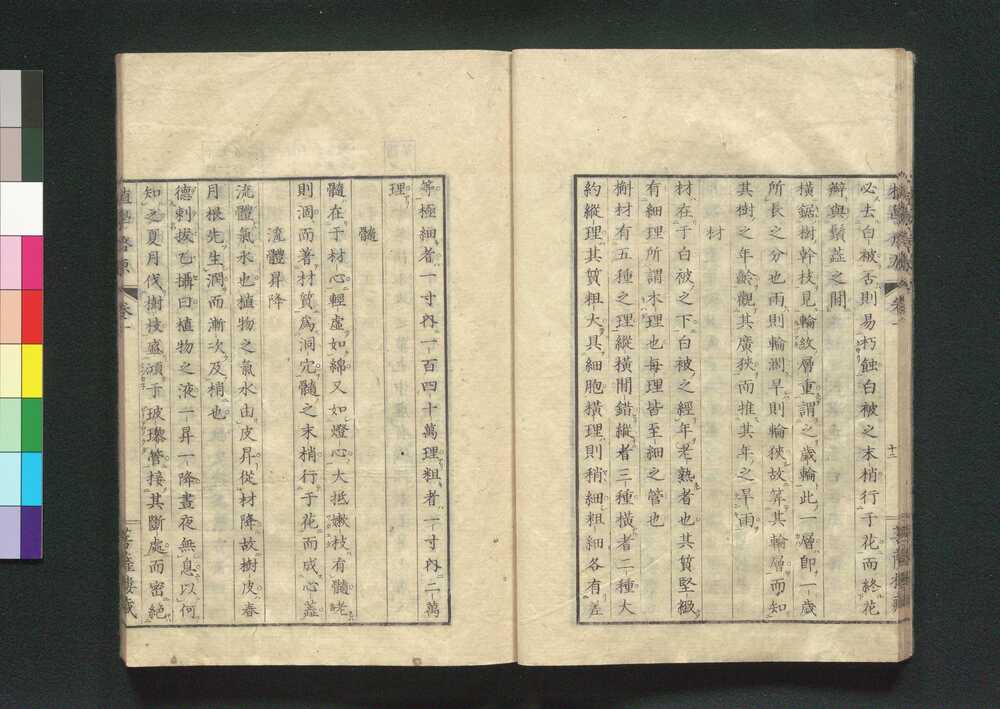 必去白被否則易朽蝕白被之末梢行于花而終花
辧與鬚蕋之間
橫鋸樹幹枝見輪紋層重謂之歲輪此一層即一歲
所長之分也雨則輪濶旱則輪狹故筭其輪層而知
其樹之年齡觀其廣狹而推其年之旱雨
材
材在于白被之下白被之經年老熟者也其質堅緻
有細理所謂木理也每理皆至細之管也
槲材有五種之理縱橫間錯縱者三種橫者二種大
約縱理其質粗大具細胞橫理則稍細粗細各有差
等極細者一寸內一百四十萬理粗者一寸內二萬
理
髓
髓在于材心輕虛如綿又如燈心大抵嫩枝有髓老
則涸而著材質為洞穴髓之末梢行于花而成心蕋
流體昇降
流體氣水也植物之氣水由皮昇從材降故樹皮春
月根先生潤而漸次及梢也
德剌拔乙攝曰植物之液一昇一降晝夜無息以何
知之夏月伐樹枝盛澒于玻瓈管接其斷處而密絕
卷一
菩薩樓藏